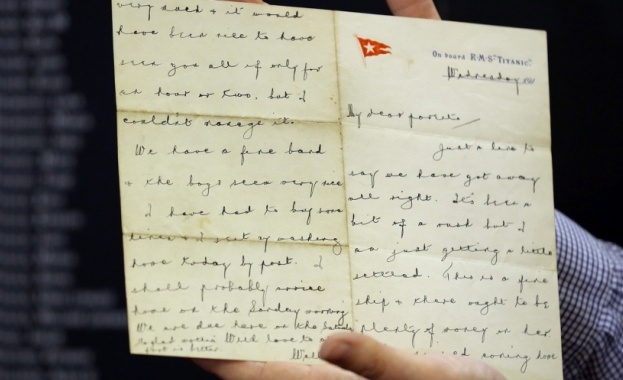 On board R.M.S. "TITANIC."
Wednesday 191
My dear parents,
Just a line to
say we have got away
all right. It's been a
bit of a rush but I
am just getting a little
settled. This is a fine
ship & there ought to be
plenty of money on her
missed coming home
very much & it would
have been nice to have
seen you all if only for
an hour or two, but I
couldn't manage it.
We have a fine band
& the boys seem very nice
I have had to buy some
linen & I sent my washing
home today by post. I
shall probably arrive
home on the Sunday morning
We are due here on the Saturday
glad mother's With love to
foot is better.
Wall